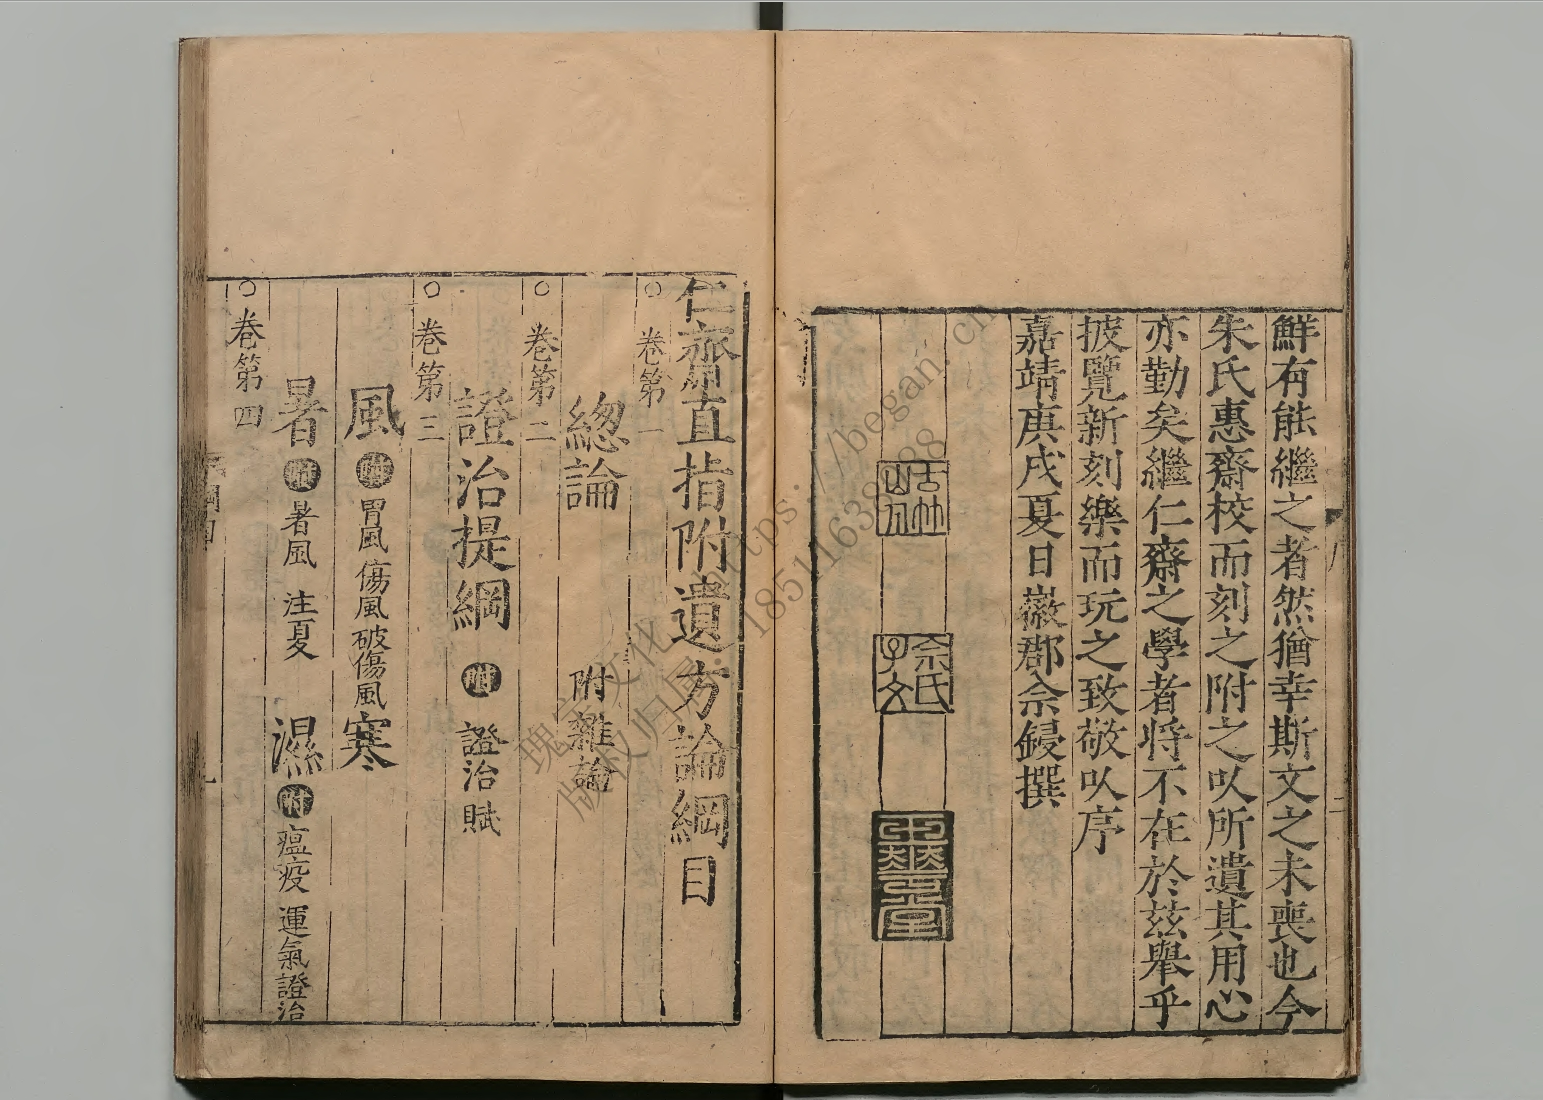 鮮有能繼之者然猶幸斯文之未喪也今
朱氏惠齋校而刻之附之㕥所遺其用心
亦勤矣繼仁齋之學者將不在於茲舉乎
披覽新刻樂而玩之致敬㕥序
嘉靖庚戌夏日徽郡佘鋟撰
仁齋直指附遺方論綱目
○卷第一
總論 附雜論
○卷第二
證治提綱 附 證治賦
○卷第三
風 附 胃風 傷風 破傷風 寒
暑 附 暑風 注夏 濕 附 瘟疫 運氣證治
○卷第四
瑰宝文化 https://began.cn